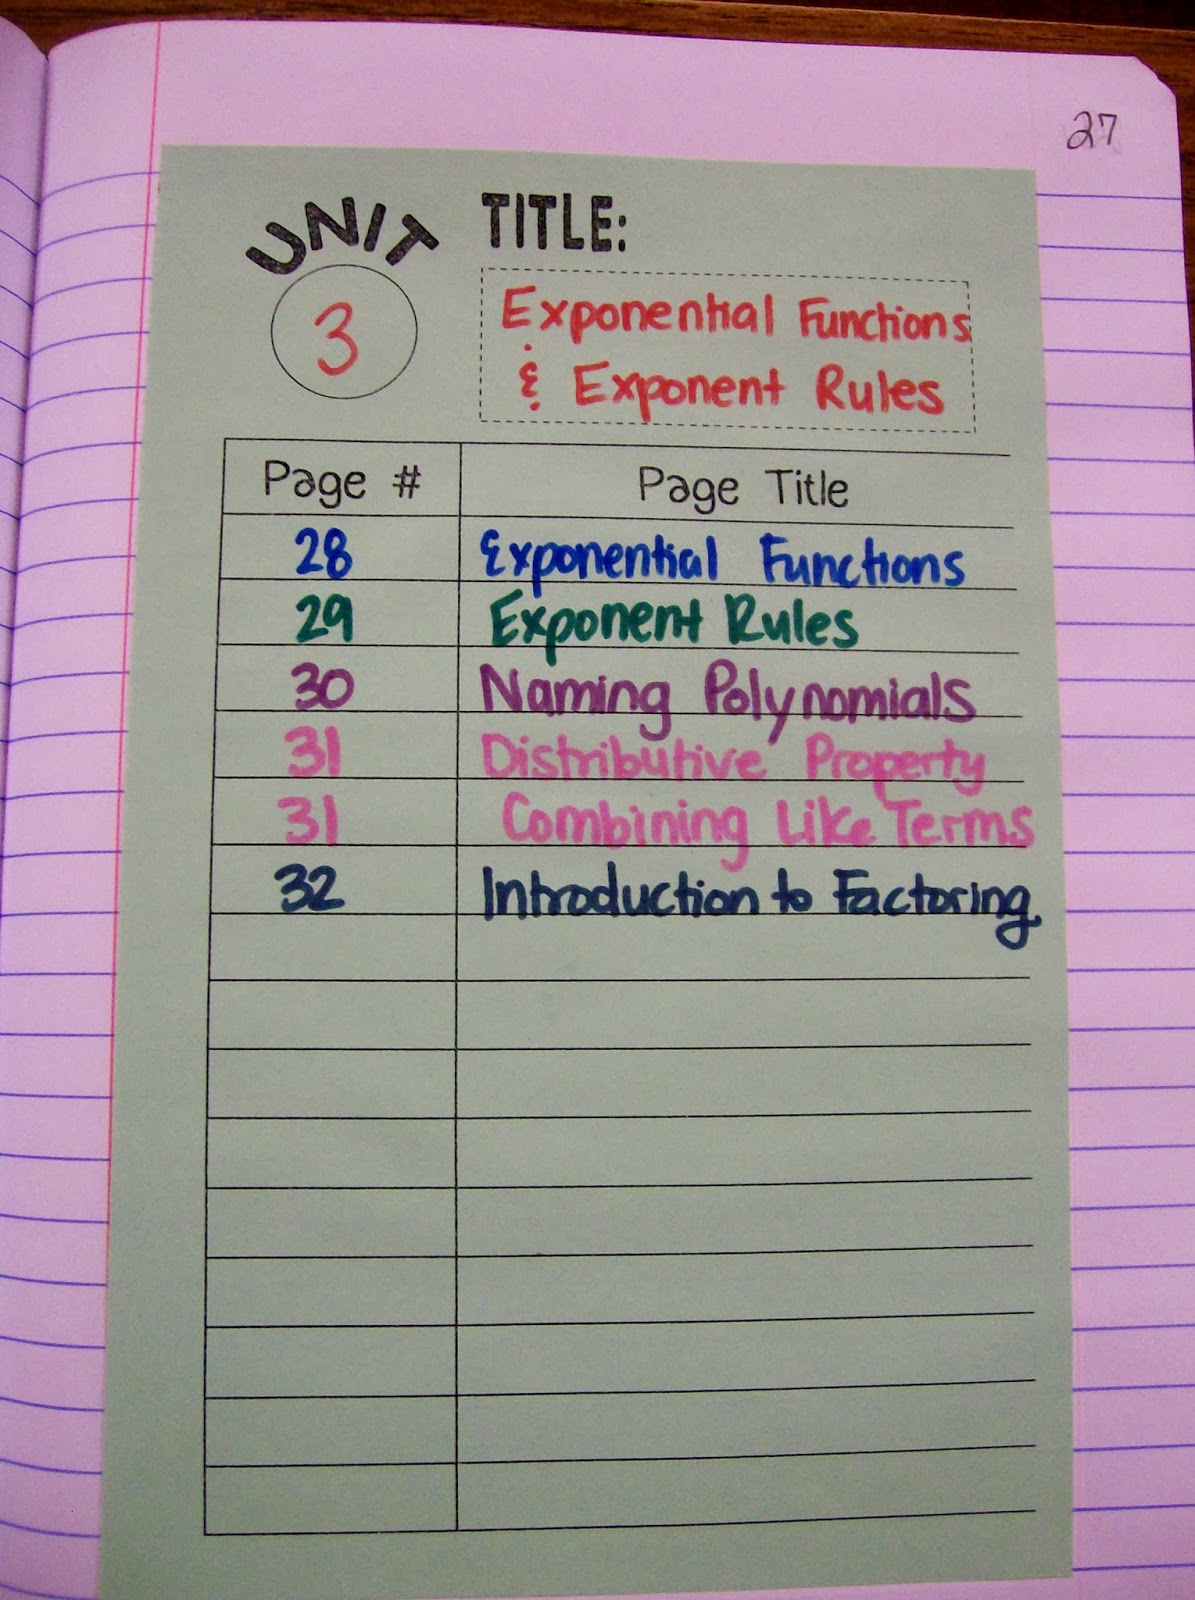 27
UNIT
3
TITLE:
Exponential Functions
& Exponent Rules
Page # Page Title
28 Exponential Functions
29 Exponent Rules
30 Naming Polynomials
31 Distributive Property
31 Combining Like Terms
32 Introduction to Factoring